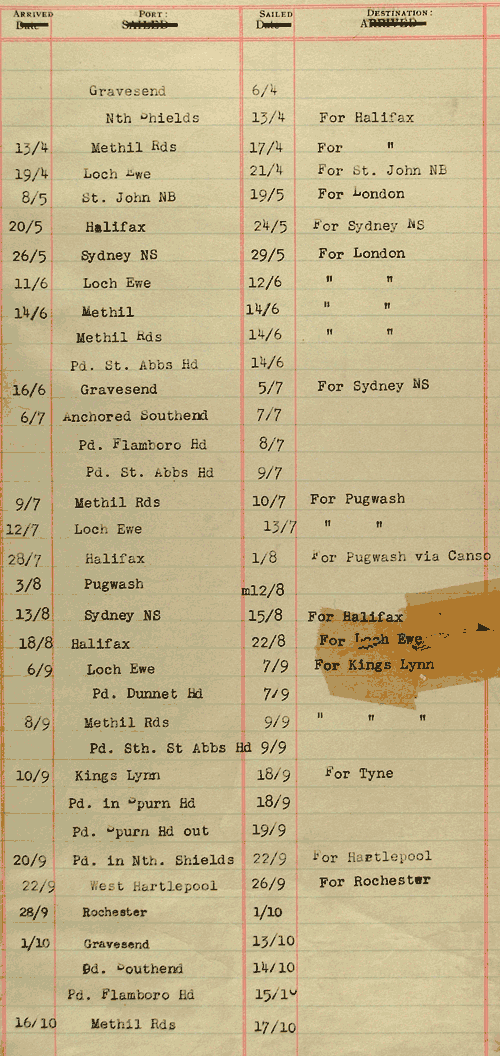 ARRIVED PORT: SAILED DESTINATION:
Date SAILED Date ARRIVED
Gravesend 6/4
Nth Shields 13/4 For Halifax
13/4 Methil Rds 17/4 For "
19/4 Loch Ewe 21/4 For St. John NB
8/5 St. John NB 19/5 For London
20/5 Halifax 24/5 For Sydney NS
26/5 Sydney NS 29/5 For London
11/6 Loch Ewe 12/6 " "
14/6 Methil 14/6 " "
Methil Rds 14/6 " "
Pd. St. Abbs Hd 14/6
16/6 Gravesend 5/7 For Sydney NS
6/7 Anchored Southend 7/7
Pd. Flamboro Hd 8/7
Pd. St. Abbs Hd 9/7
9/7 Methil Rds 10/7 For Pugwash
12/7 Loch Ewe 13/7 " "
28/7 Halifax 1/8 For Pugwash via Canso
3/8 Pugwash m12/8
13/8 Sydney NS 15/8 For Halifax
18/8 Halifax 22/8 For Loch Ewe
6/9 Loch Ewe 7/9 For Kings Lynn
Pd. Dunnet Hd 7/9
8/9 Methil Rds 9/9 " " "
Pd. Sth. St Abbs Hd 9/9
10/9 Kings Lynn 18/9 For Tyne
Pd. in Spurn Hd 18/9
Pd. Spurn Hd out 19/9
20/9 Pd. in Nth. Shields 22/9 For Hartlepool
22/9 West Hartlepool 26/9 For Rochester
28/9 Rochester 1/10
1/10 Gravesend 13/10
Pd. Southend 14/10
Pd. Flamboro Hd 15/10
16/10 Methil Rds 17/10